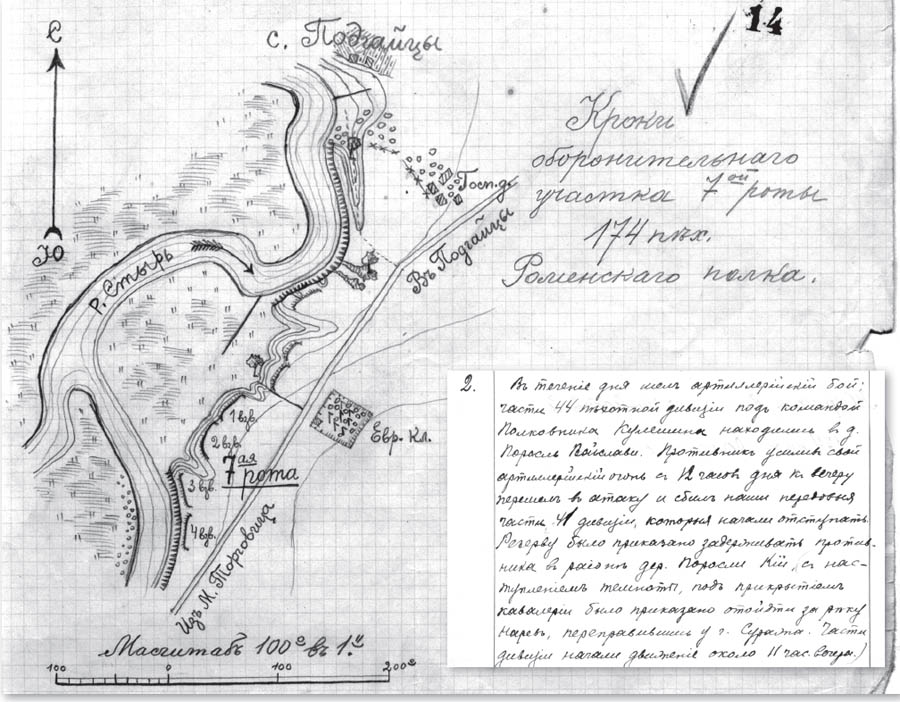 14
С
с. Подгайцы
Кроки
оборонительнаго
участка 7ой роты
174 пѣх.
Роменскаго полка.
Госп. д.
Въ Подгайцы
Ю
Р. Стырь
1 взв.
2 взв.
Евр. Кл.
7ая рота
3 взв.
4 взв.
Изъ М. Торговица
Масштабъ 100с въ 1".
100 0 100 200с
2. Въ теченіе дня шелъ артиллерійскій бой;
части 44 пѣхотной дивизіи подъ командой
Полковника Кулешина находились в д.
Поросль Войслави. Противникъ усилив свой
артиллерійскій огонь с 12 часов дня к вечеру
перешел в атаку и сбил наши передовыя
части 41 дивизіи, которыя начали отступать.
Резерву было приказано задерживать против-
ника в районѣ дер. Поросли Кій, с нас-
тупленіем темноты, подъ прикрытіем
кавалеріи было приказано отойти за рѣку
Наревъ, переправившись у г. Суража. Части
дивизіи начали движеніе около 11 час. вечера.)